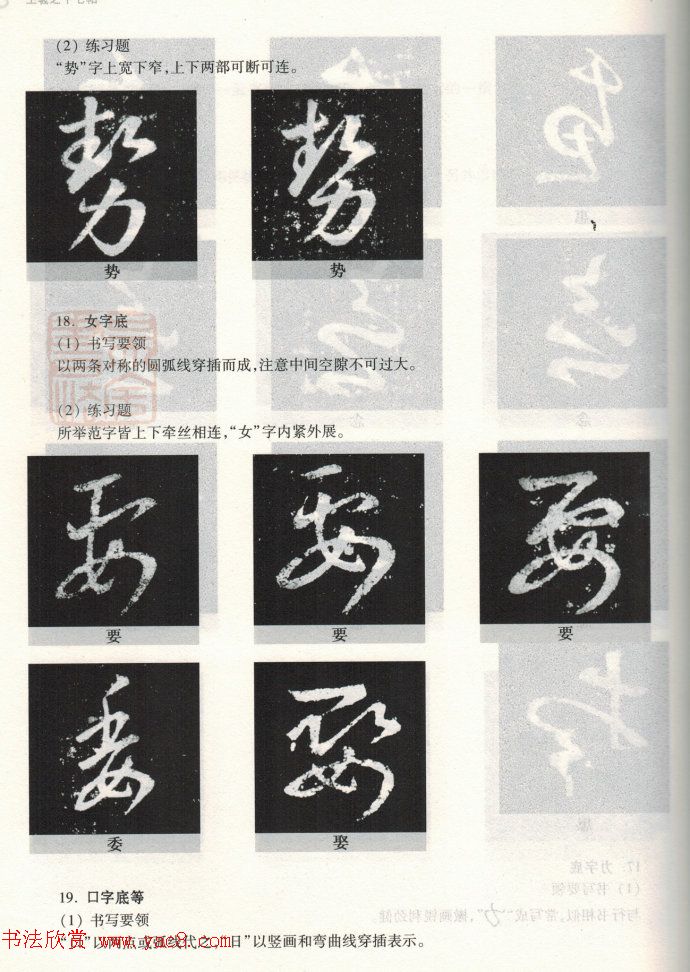 (2) 练习题
“势”字上宽下窄,上下两部可断可连。
势 势
18. 女字底
(1) 书写要领
以两条对称的圆弧线穿插而成,注意中间空隙不可过大。
(2) 练习题
所举范字皆上下牵丝相连,“女”字内紧外展。
要 要 要
委 娶
19. 口字底等
(1) 书写要领
以两点或弧线代之,“日”以竖画和弯曲线穿插表示。
书法欣赏 www.yac8.com